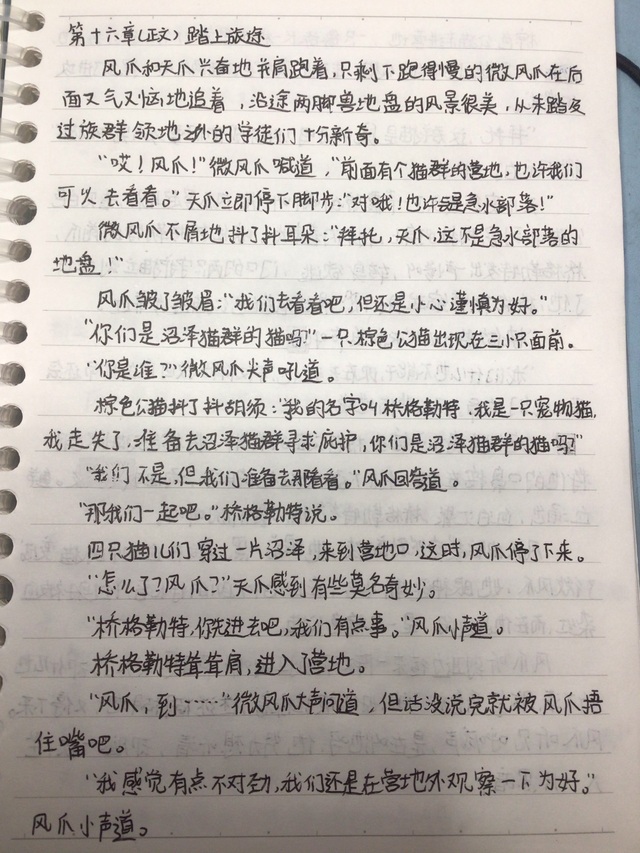 第十六章(正文) 踏上旅途
风爪和天爪兴奋地并肩跑着,只剩下跑得慢的微风爪在后
面又气又恼地追着,沿途两脚兽地盘的风景很美,从未踏及
过族群领地之外的学徒们十分新奇。
"哎!风爪!"微风爪喊道,"前面有个猫群的营地,也许我们
可以去看看。"天爪立即停下脚步:"对哦!也许是急水部落!"
微风爪不屑地抖了抖耳朵:"拜托,天爪,这不是急水部落的
地盘!"
风爪皱了皱眉:"我们去看看吧,但还是小心谨慎为好。"
"你们是沼泽猫群的猫吗?"一只棕色公猫出现在三小只面前。
"你是谁?"微风爪尖声吼道。
棕色公猫抖了抖胡须:"我的名字叫桥格勒特,我是一只宠物猫,
我走失了,准备去沼泽猫群寻求庇护,你们是沼泽猫群的猫吗?"
"我们不是,但我们准备去那看看。"风爪回答道。
"那我们一起吧。"桥格勒特说。
四只猫儿们穿过一片沼泽,来到营地口,这时,风爪停了下来。
"怎么了?风爪?"天爪感到有些莫名奇妙。
"桥格勒特,你先进去吧,我们有点事。"风爪小声道。
桥格勒特耸耸肩,进入了营地。
"风爪,到……"微风爪大声问道,但话没说完就被风爪捂
住嘴吧。
"我感觉有点不对劲,我们还是在营地外观察一下为好。"
风爪小声道。